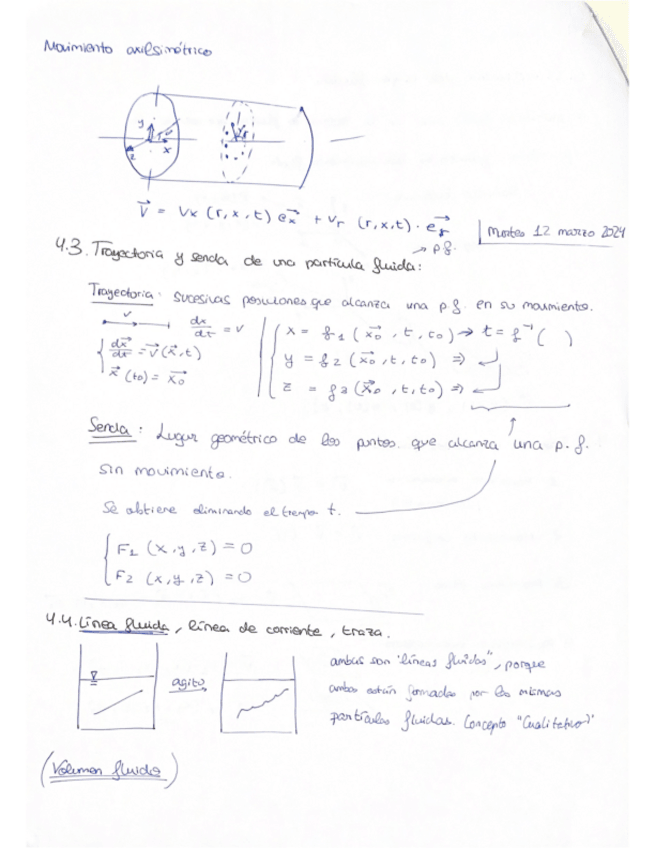 Movimiento axilsimétrico
y
x
z
r
Vr
V⃗ = Vx (r, x, t) ex⃗ + Vr (r, x, t) · er⃗
→ p f.
Martes 12 marzo 2024
4.3. Trayectoria y senda de una partícula fluida:
Trayectoria: sucesivas posiciones que alcanza una p f. en su movimiento.
v
dx/dt = v
{ dx⃗/dt = v⃗ (x⃗, t)
x⃗ (to) = xo⃗
{ x = f1 (xo⃗, t, to) → t = f⁻¹ ( )
y = f2 (xo⃗, t, to) ⇒
z = f3 (xo⃗, t, to) ⇒
Senda: Lugar geométrico de los puntos. que alcanza una p. f.
sin movimiento.
Se obtiene eliminando el tiempo t.
{ F1 (x, y, z) = 0
F2 (x, y, z) = 0
4.4. Línea fluida, línea de corriente, traza.
agito
ambas son "líneas fluidas", porque
ambas están formadas por las mismas
partículas fluidas. Concepto "Cualitativo"
(Volumen fluido)